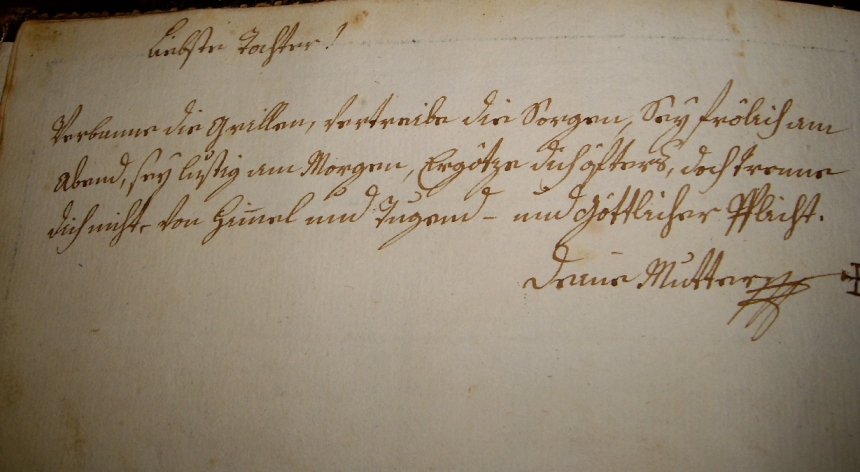 Liebste Tochter!
Verbanne die Grillen, vertreibe die Sorgen, Sey frölich am
Abend, sey lustig am Morgen, Ergötze dich öfters, doch trenne
dich nicht von Him̅el und Tugend - und Göttlicher Pflicht.
Deine Mutter